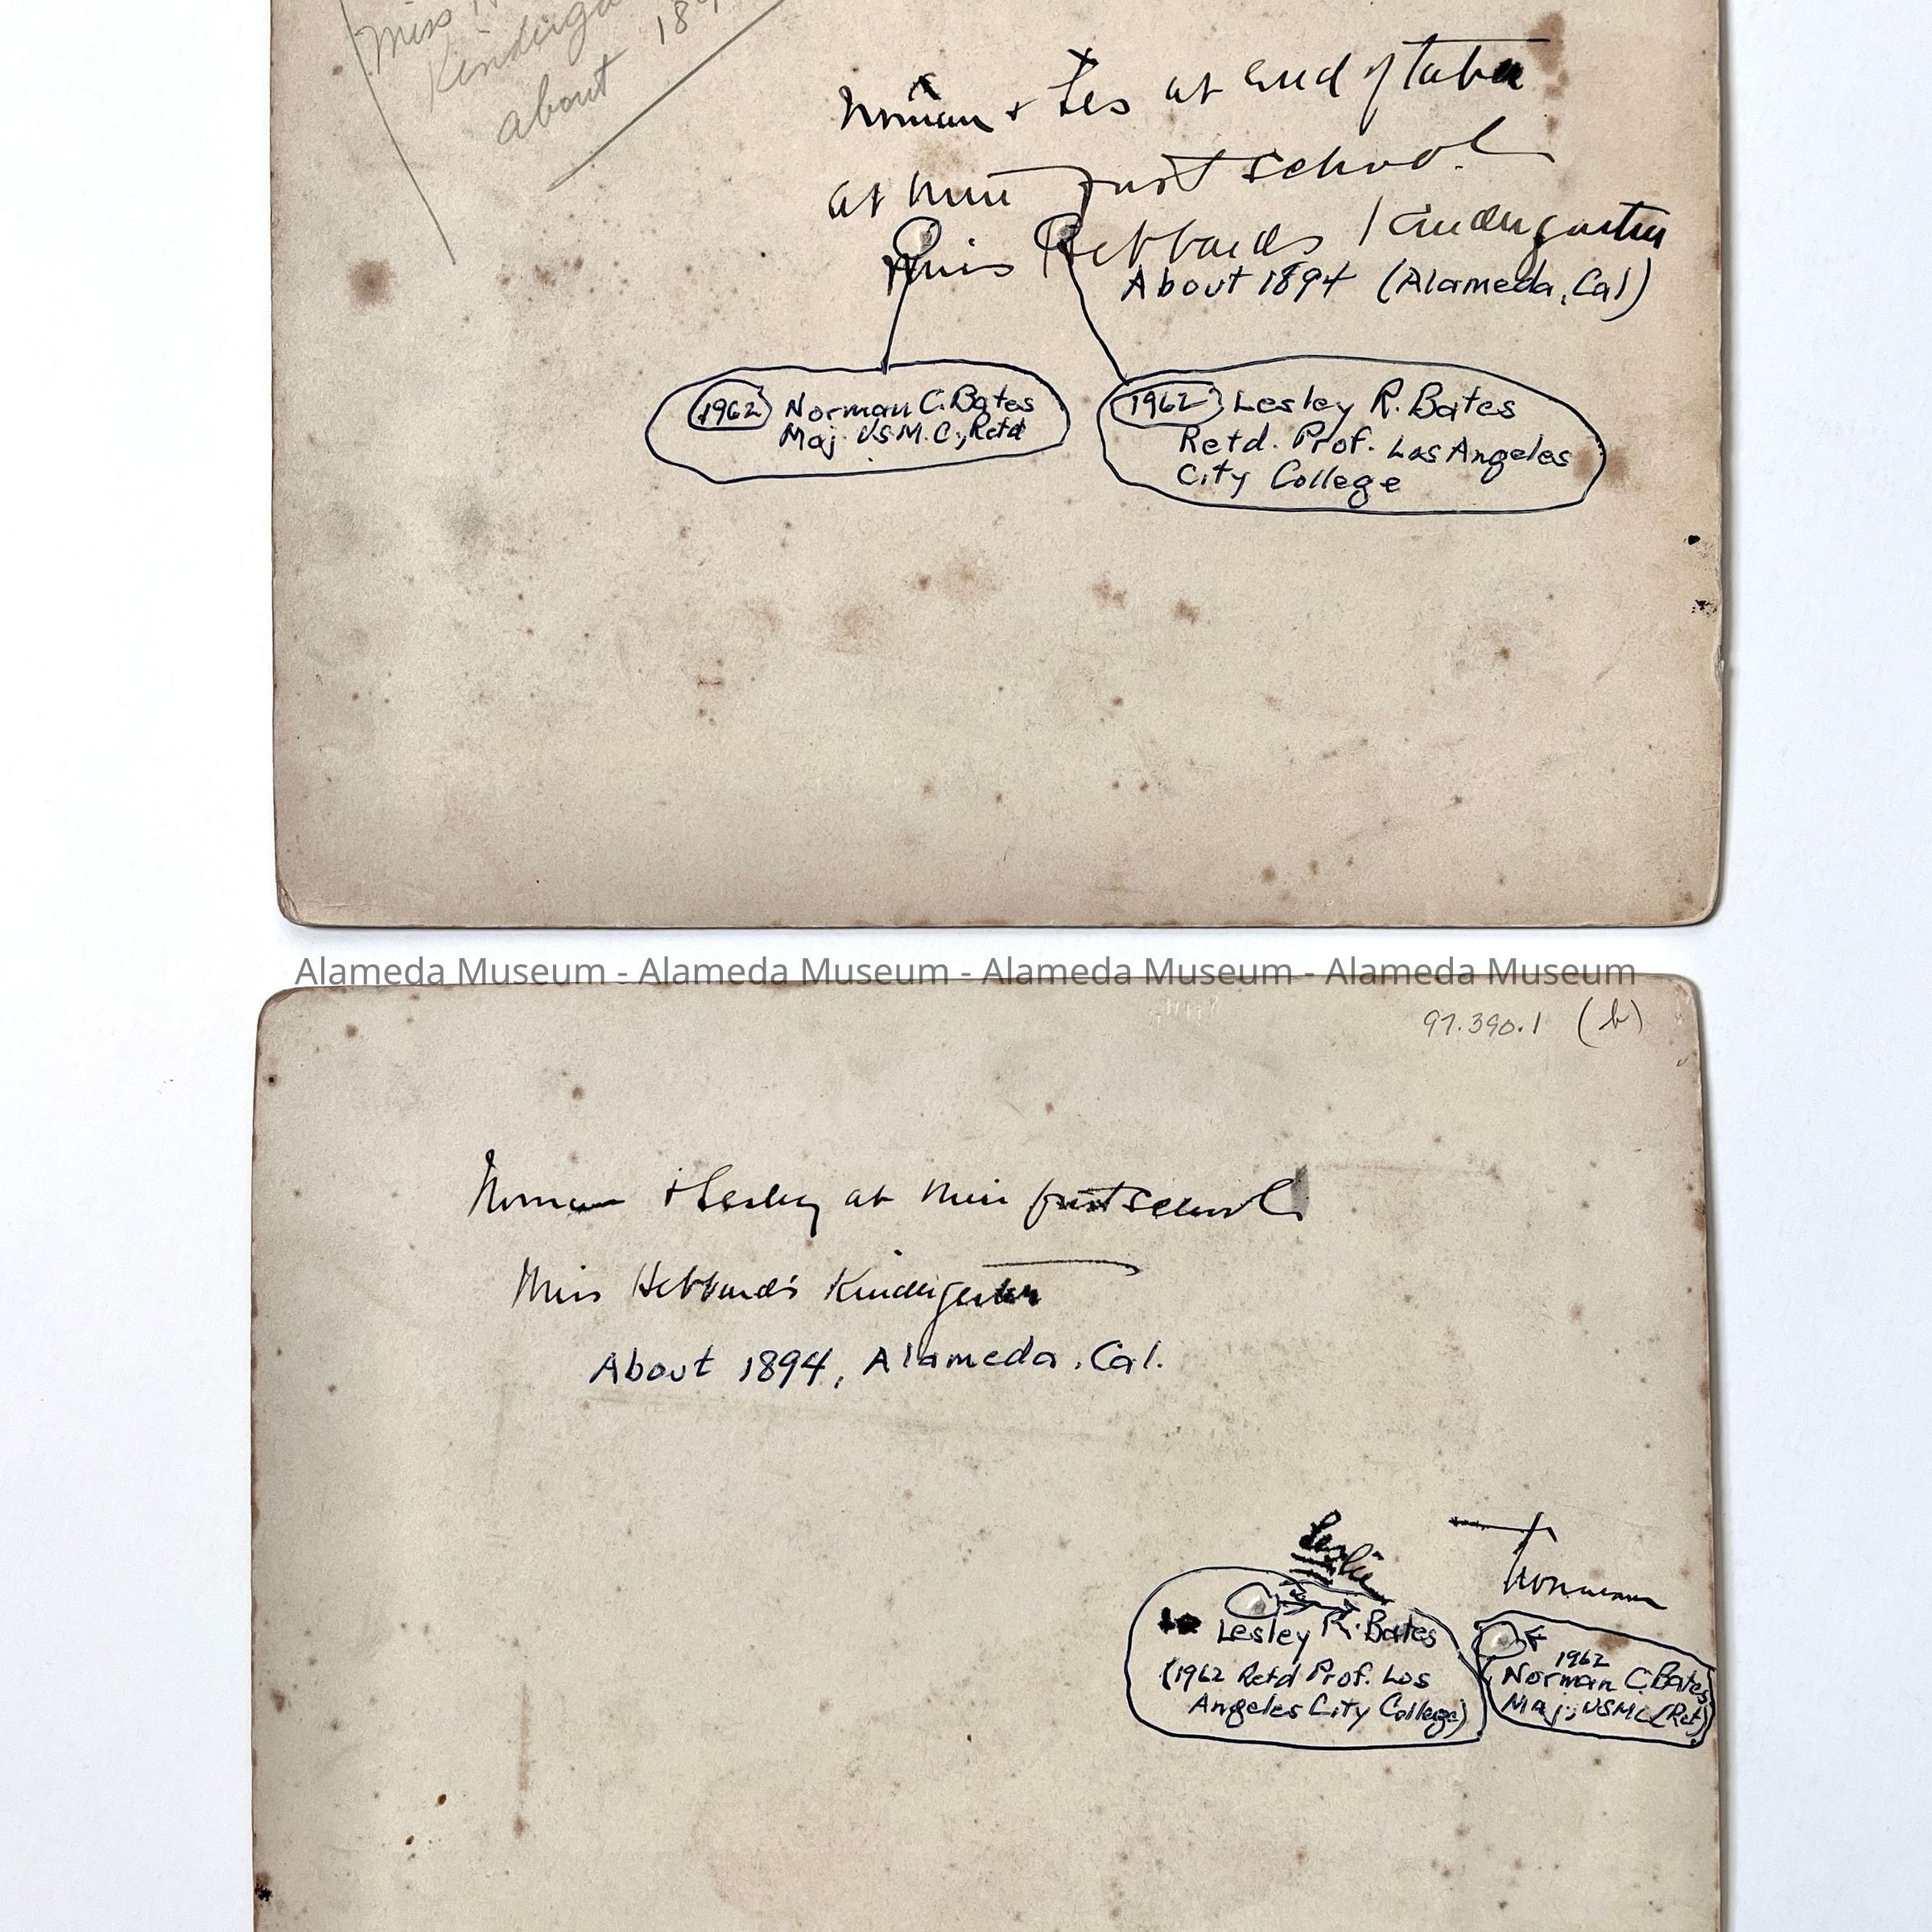 Miss
Kinderga
about 189
Norman + Les at end of table
at their first school
Miss Hebbards Kindergarten
About 1894 (Alameda, Cal)
1962 Norman C. Bates
Maj. USM.C., Retd
1962 Lesley R. Bates
Retd. Prof. Los Angeles
City College
Alameda Museum - Alameda Museum - Alameda Museum - Alameda Museum
97.390.1 (b)
Norman + Lesley at their first school
Miss Hebbard's Kindergarten
About 1894, Alameda, Cal.
Leslie
Lesley R. Bates
(1962 Retd Prof. Los
Angeles City College)
Norman
1962
Norman C. Bates
Maj., USMC (Ret)